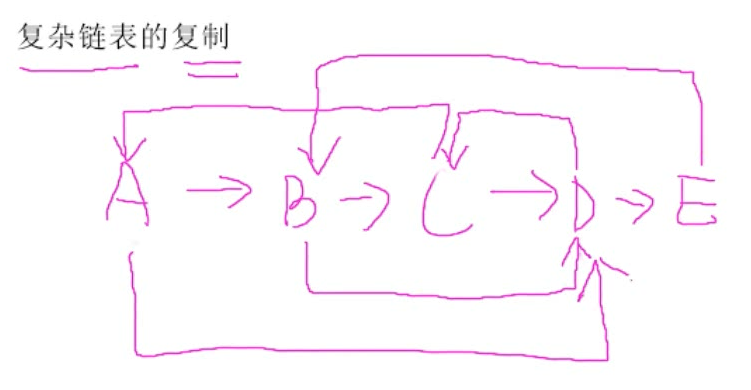 复杂链表的复制
A → B → C → D → E